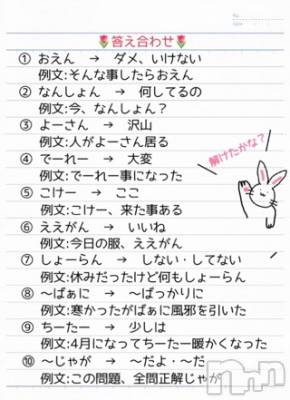 No.
Date
🌷答え合わせ🌷
① おえん → ダメ、いけない
例文:そんな事したらおえん
② なんしょん → 何してるの
例文:今、なんしょん？
③ よーさん → 沢山
例文:人がよーさん居る
④ でーれー → 大変
例文:でーれー事になった
⑤ こけー → ここ
例文:こけー、来た事ある
⑥ ええがん → いいね
例文:今日の服、ええがん
⑦ しょーらん → しない・してない
例文:休みだったけど何もしょーらん
⑧ 〜ばぁに → 〜ばっかりに
例文:寒かったがばぁに風邪を引いた
⑨ ちーたー → 少しは
例文:4月になってちーたー暖かくなった
⑩ 〜じゃが → 〜だよ・〜だ
例文:この問題、全問正解じゃが
解けたかな？